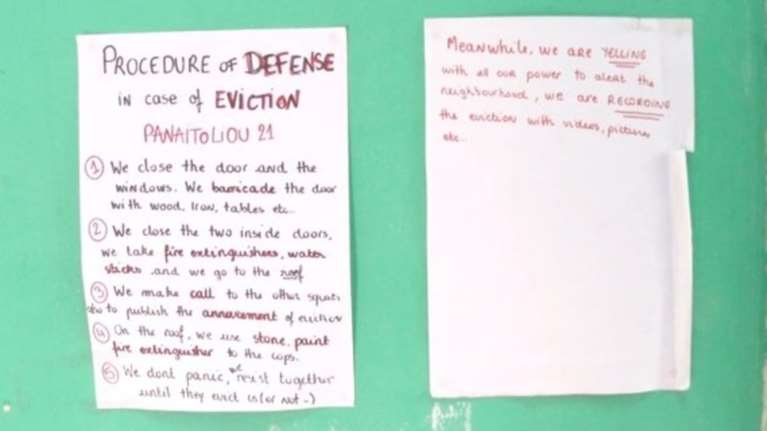 PROCEDURE OF DEFENSE
in case of EVICTION
PANAITOLIOU 21
1 We close the door and the
windows. We barricade the door
with wood, Iron, tables etc...
2 We close the two inside doors,
we take fire extinguishers, water
sticks and we go to the roof
3 We make call to the other squats
to publish the annoucement of eviction
4 On the roof, we use stone, paint
fire extinguisher to the cops.
5 We dont panic, we resist together
until they evict us (or not -)
Meanwhile, we are YELLING
with all our power to alert the
neighbourhood, we are RECORDING
the eviction with videos, pictures
etc...